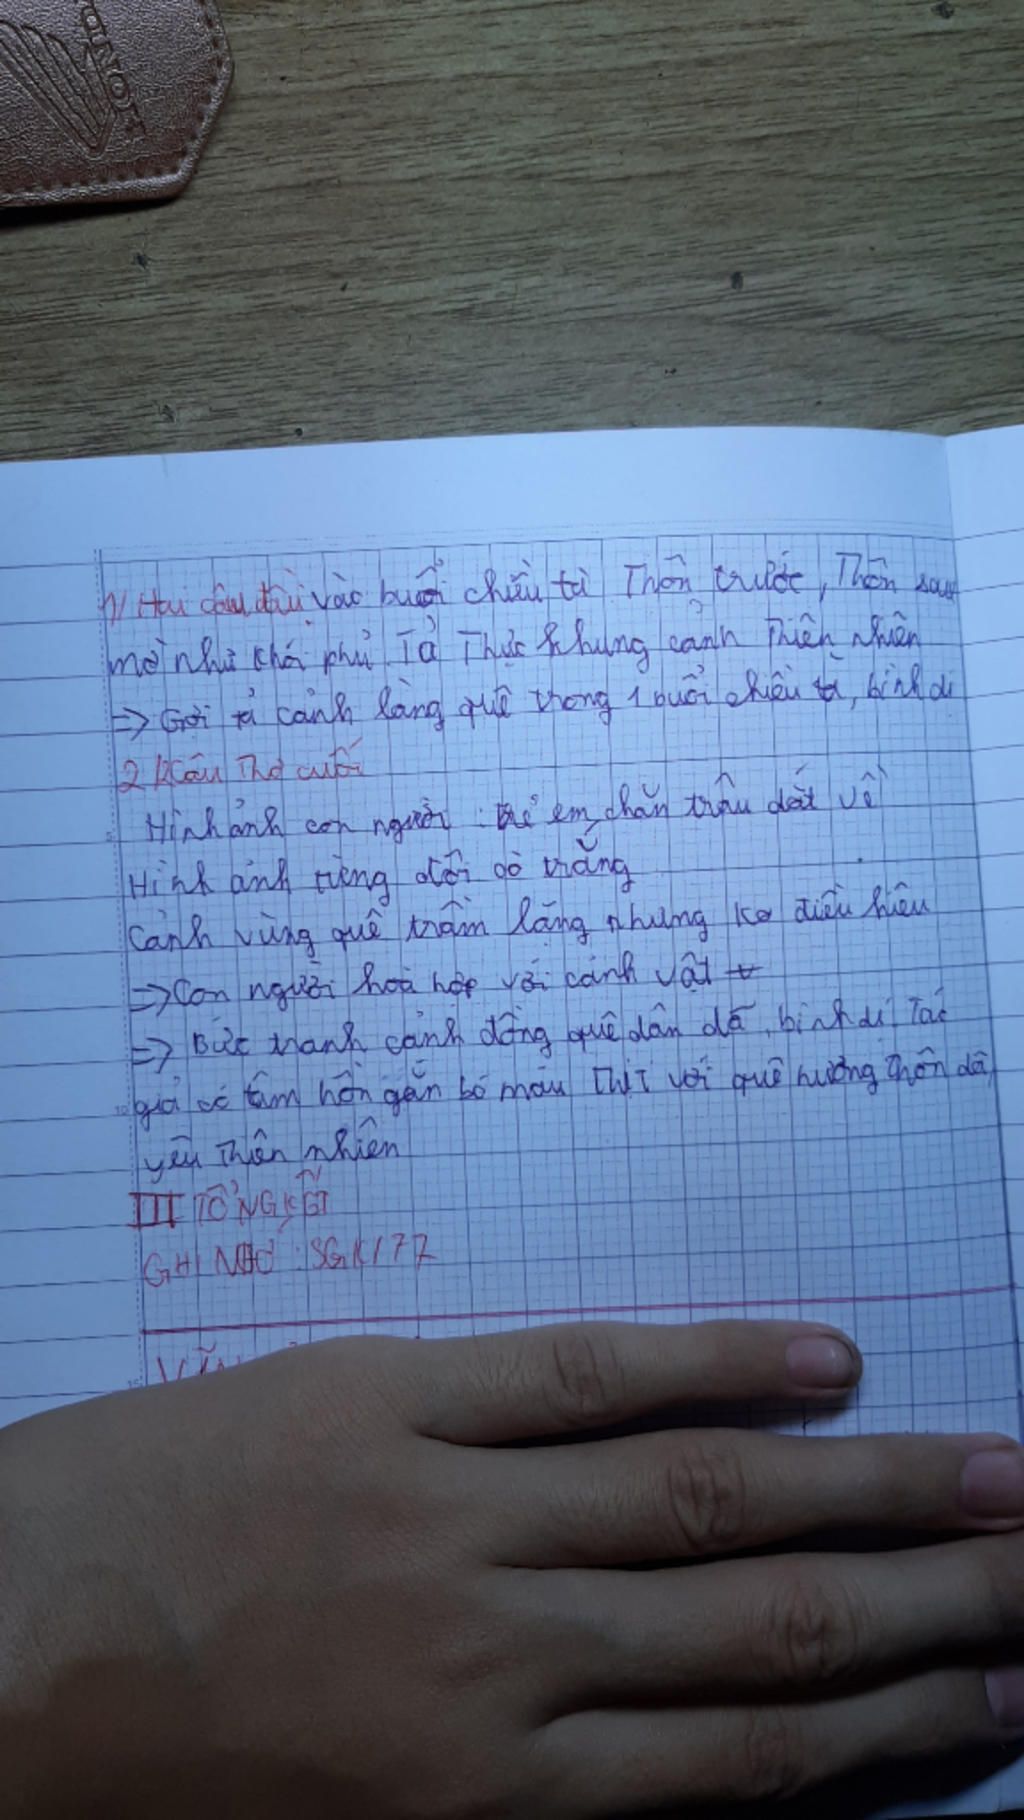 HONDA
1/ Hai câu đầu, vào buổi chiều tà Thôn trước, Thôn sau
mờ như khói phủ. Tả Thực khung cảnh Thiên nhiên
=> Gợi tả cảnh làng quê trong 1 buổi chiều tà, bình dị
2/ 2 Câu Thơ cuối
Hình ảnh con người: trẻ em chăn trâu dắt về
Hình ảnh từng đôi cò trắng
Cảnh vùng quê trầm lắng nhưng ko điều hiêu
=> Con người hoà hợp với cảnh vật
=> Bức tranh cảnh đồng quê dân dã, bình dị. Tác
giả có tâm hồn gắn bó máu Thịt với quê hương thôn dã,
yêu Thiên nhiên
III TỔNG KẾT
GHI NHỚ: SGK/77